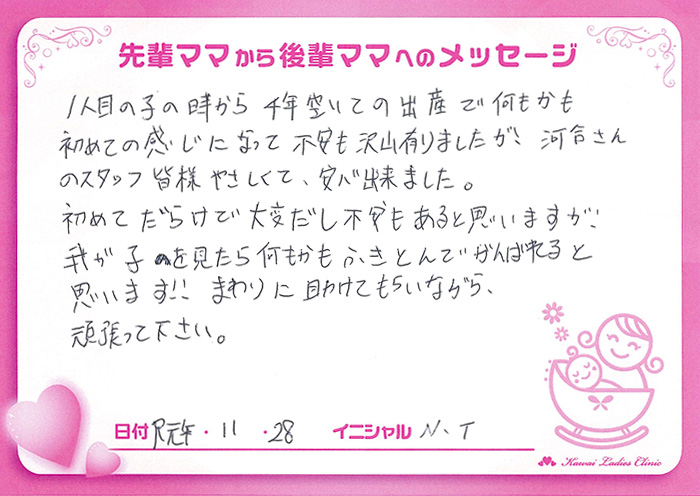 先輩ママから後輩ママへのメッセージ
1人目の子の時から 4年空いての出産で何もかも
初めての感じになって不安も沢山有りましたが、河合さん
のスタッフ皆様やさしくて、安心出来ました。
初めてだらけで大変だし不安もあると思いますが、
我が子を見たら何もかもふきとんでがんばれると
思います!! まわりに助けてもらいながら、
頑張って下さい。
日付 R元年・11・28 イニシャル N・T
Kawai Ladies Clinic